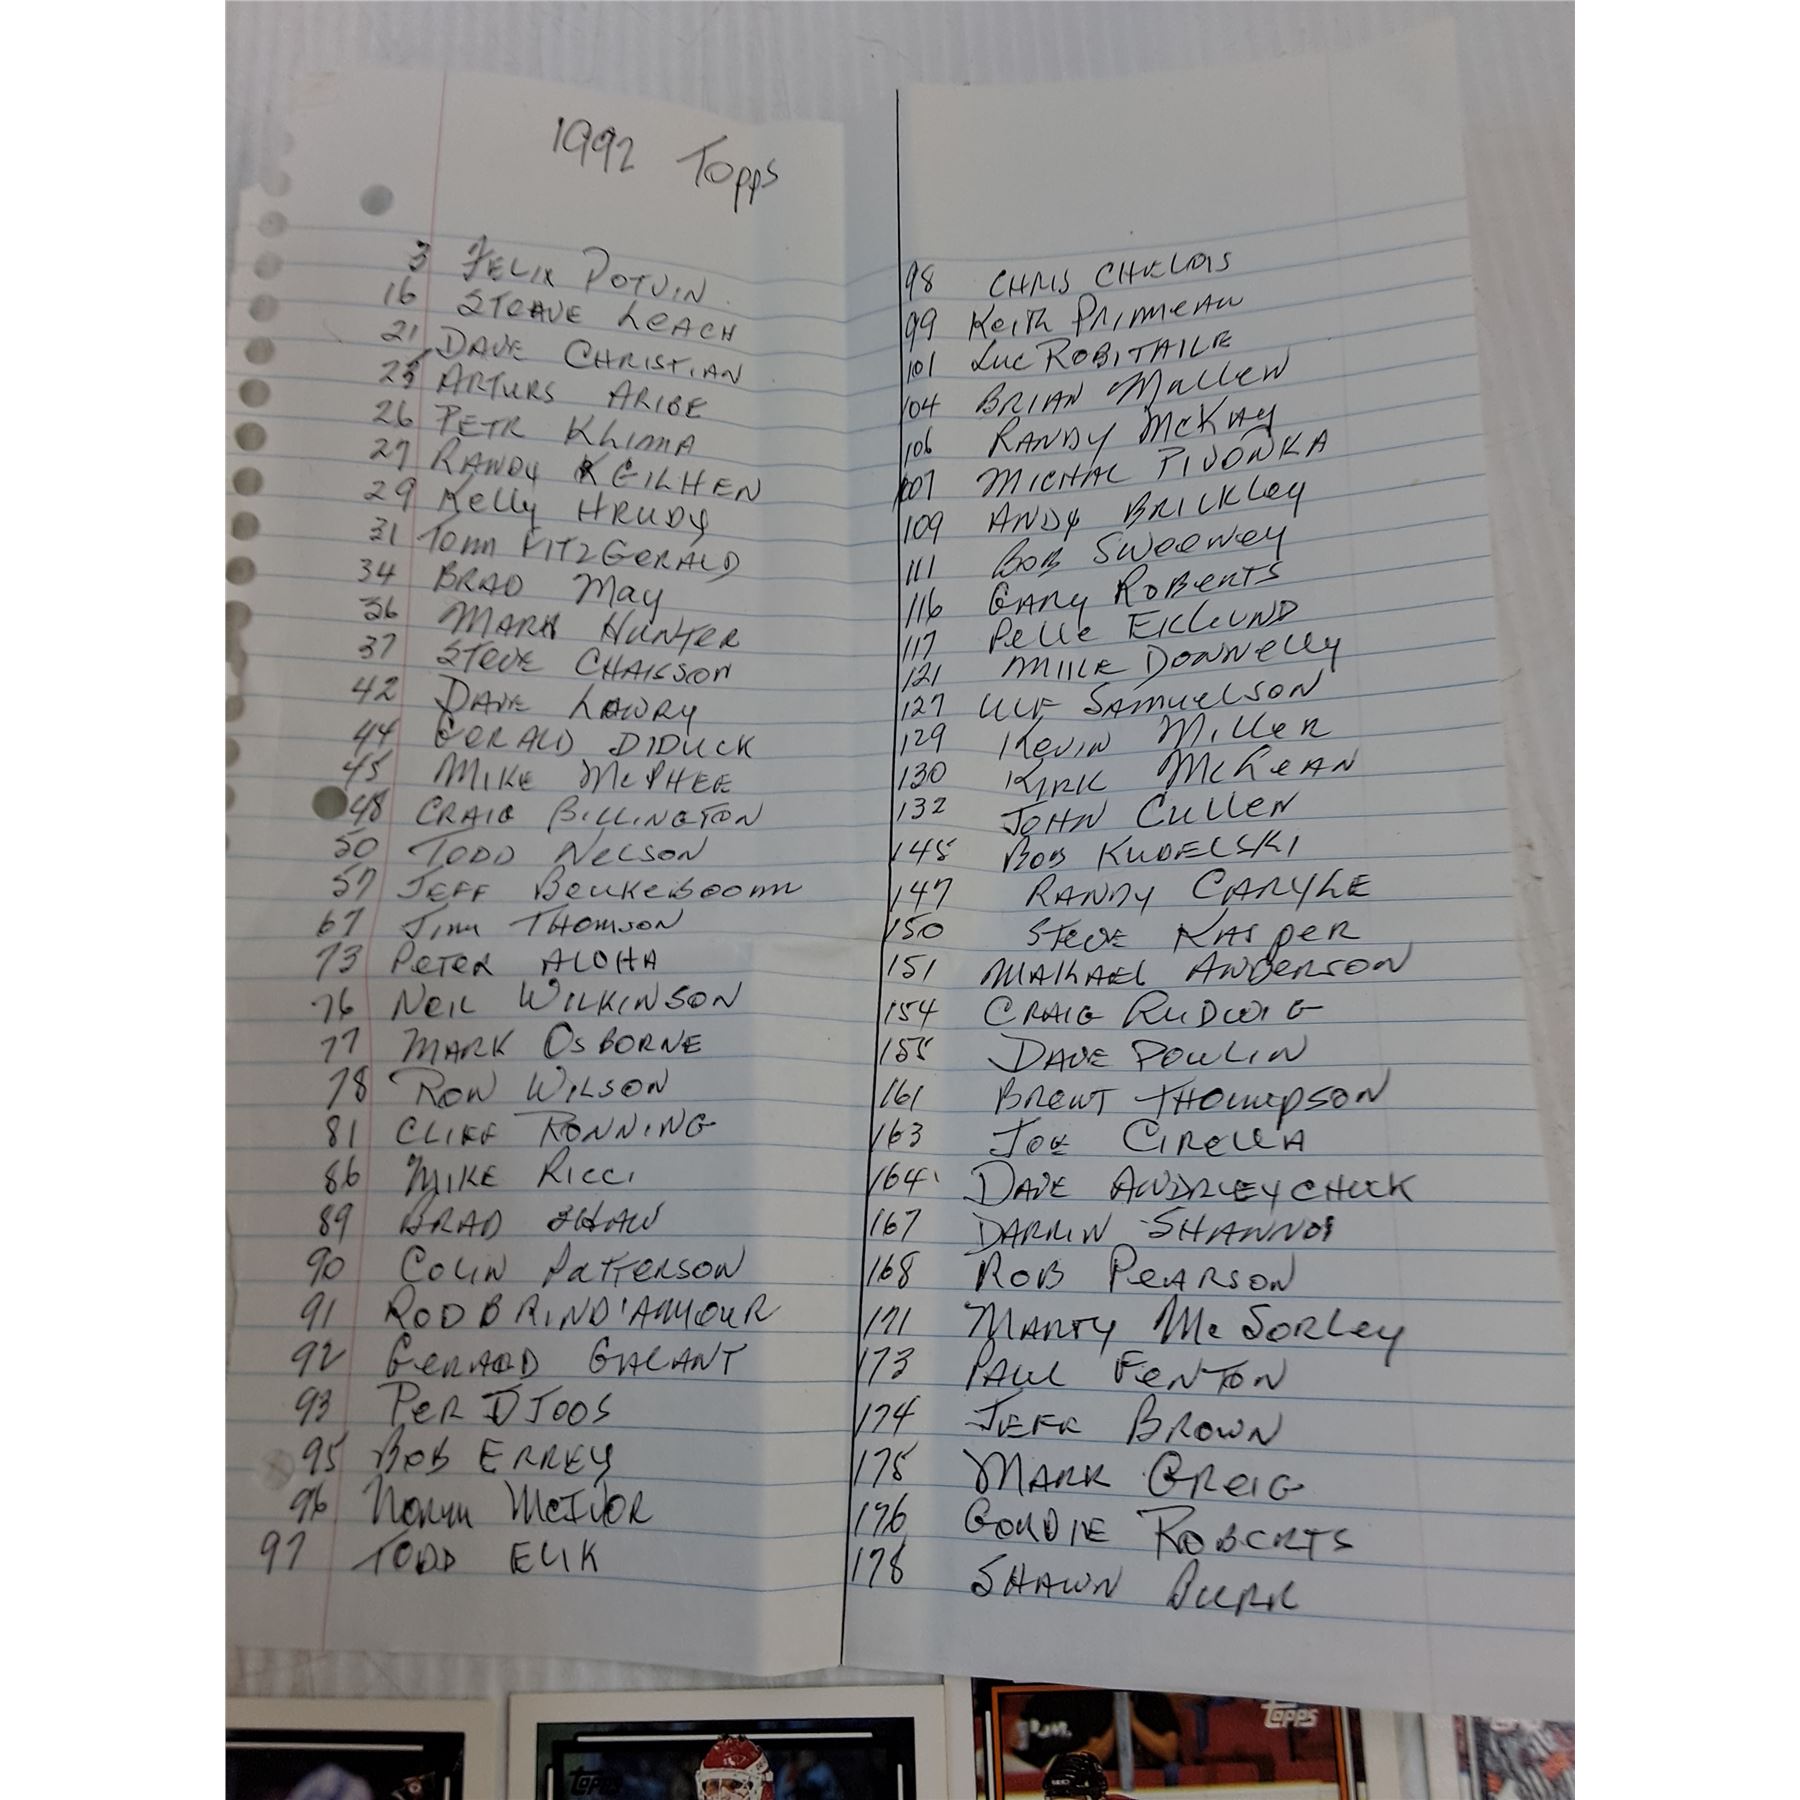 1992 Topps
3 FELIX POTVIN
16 STEAVE LEACH
21 DAVE CHRISTIAN
25 ARTURS ARIBE
26 PETR KLIMA
27 RANDY GILHEN
29 Kelly HRUDY
31 Tom FITZGERALD
34 BRAD May
36 MARK HUNTER
37 STEVE CHAISSON
42 DAVE LOWRY
44 GERALD DIDUCK
45 MIKE McPHEE
48 CRAIG BILLINGTON
50 TODD NELSON
57 JEFF Beukeboom
67 Jim THOMSON
73 PETER ALOHA
76 NEIL WILKINSON
77 MARK OSBORNE
78 RON WILSON
81 CLIFF RONNING
86 MIKE RICCI
89 BRAD SHAW
90 COLIN PATTERSON
91 ROD BRIND'AMOUR
92 GERARD GALANT
93 PER DJOOS
95 BOB ERREY
96 NORM McIVOR
97 TODD ELIK
98 CHRIS CHELOIS
99 Keith PRIMMEAU
101 LUC ROBITAILE
104 BRIAN MULLEN
106 RANDY McKAY
107 MICHAL PIVONKA
109 ANDY BRICKLEY
111 BOB SWEENEY
116 GARY ROBERTS
117 PELLE EKLUND
121 MIKE DONNELLY
127 ULF SAMUELSON
129 KEVIN MILLER
130 KIRK McLEAN
132 JOHN CULLEN
145 BOB KUDELSKI
147 RANDY CARYLE
150 STEVE KASPER
151 MAKAEL ANDERSON
154 CRAIG LUDWIG
155 DAVE POULIN
161 BRENT THOMPSON
163 JOE CIRELLA
164 DAVE ANDREYCHUCK
167 DARRIN
168 ROB PEARSON
171 MARTY McSORLEY
173 PAUL FENTON
174 JEFF BROWN
175 MARK GREIG
176 GORDIE ROBERTS
178 SHAWN BURR
TOPPS
TOPPS